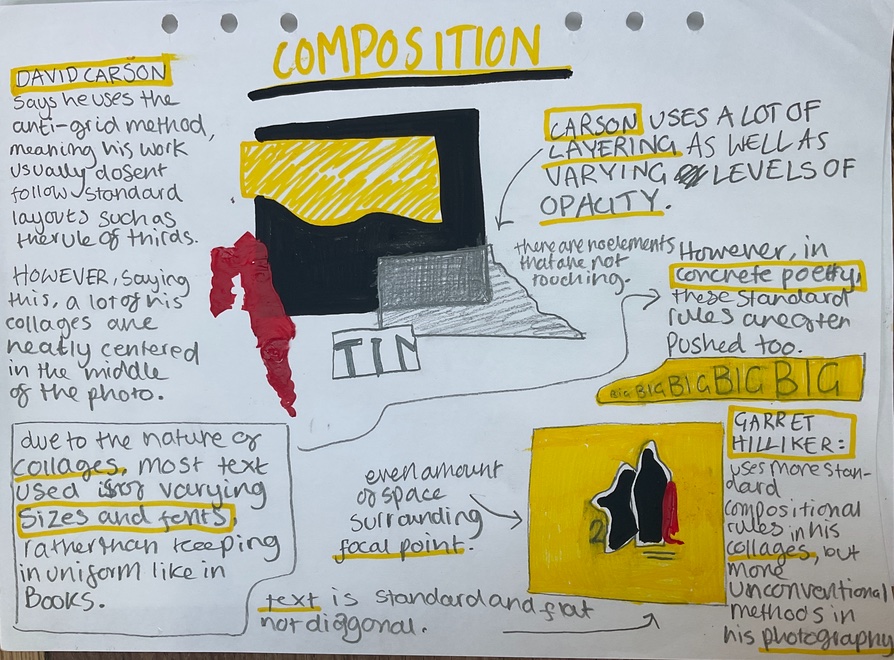 COMPOSITION
DAVID CARSON
says he uses the
anti-grid method,
meaning his work
usually dosent
follow standard
layouts such as
the rule of thirds.
HOWEVER, saying
this, a lot of his
collages are
neatly centered
in the middle
of the photo.
CARSON USES A LOT OF
LAYERING AS WELL AS
VARYING LEVELS OF
OPACITY.
there are no elements
that are not
touching.
However, in
concrete poetry,
these standard
rules are often
pushed too.
BIG BIG BIG BIG BIG
TIN
due to the nature of
collages, most text
used is of varying
sizes and fonts,
rather than keeping
in uniform like in
Books.
even amount
of space
surrounding
focal point.
2
text is standard and flat
not diagonal.
GARRET
HILLIKER:
uses more stan-
dard
compositional
rules in his
collages, but
more
unconventional
methods in
his photography